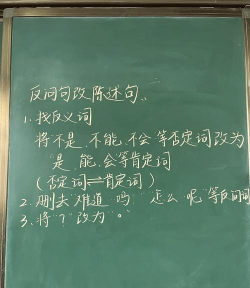 反问句改陈述句、
1、找反义词
将不是、不能、不会等否定词改为
"是、能、会等肯定词
(否定词⇌肯定词)
2、删去"难道 吗" "怎么 呢"等反问词
3、将"?"改为"。"